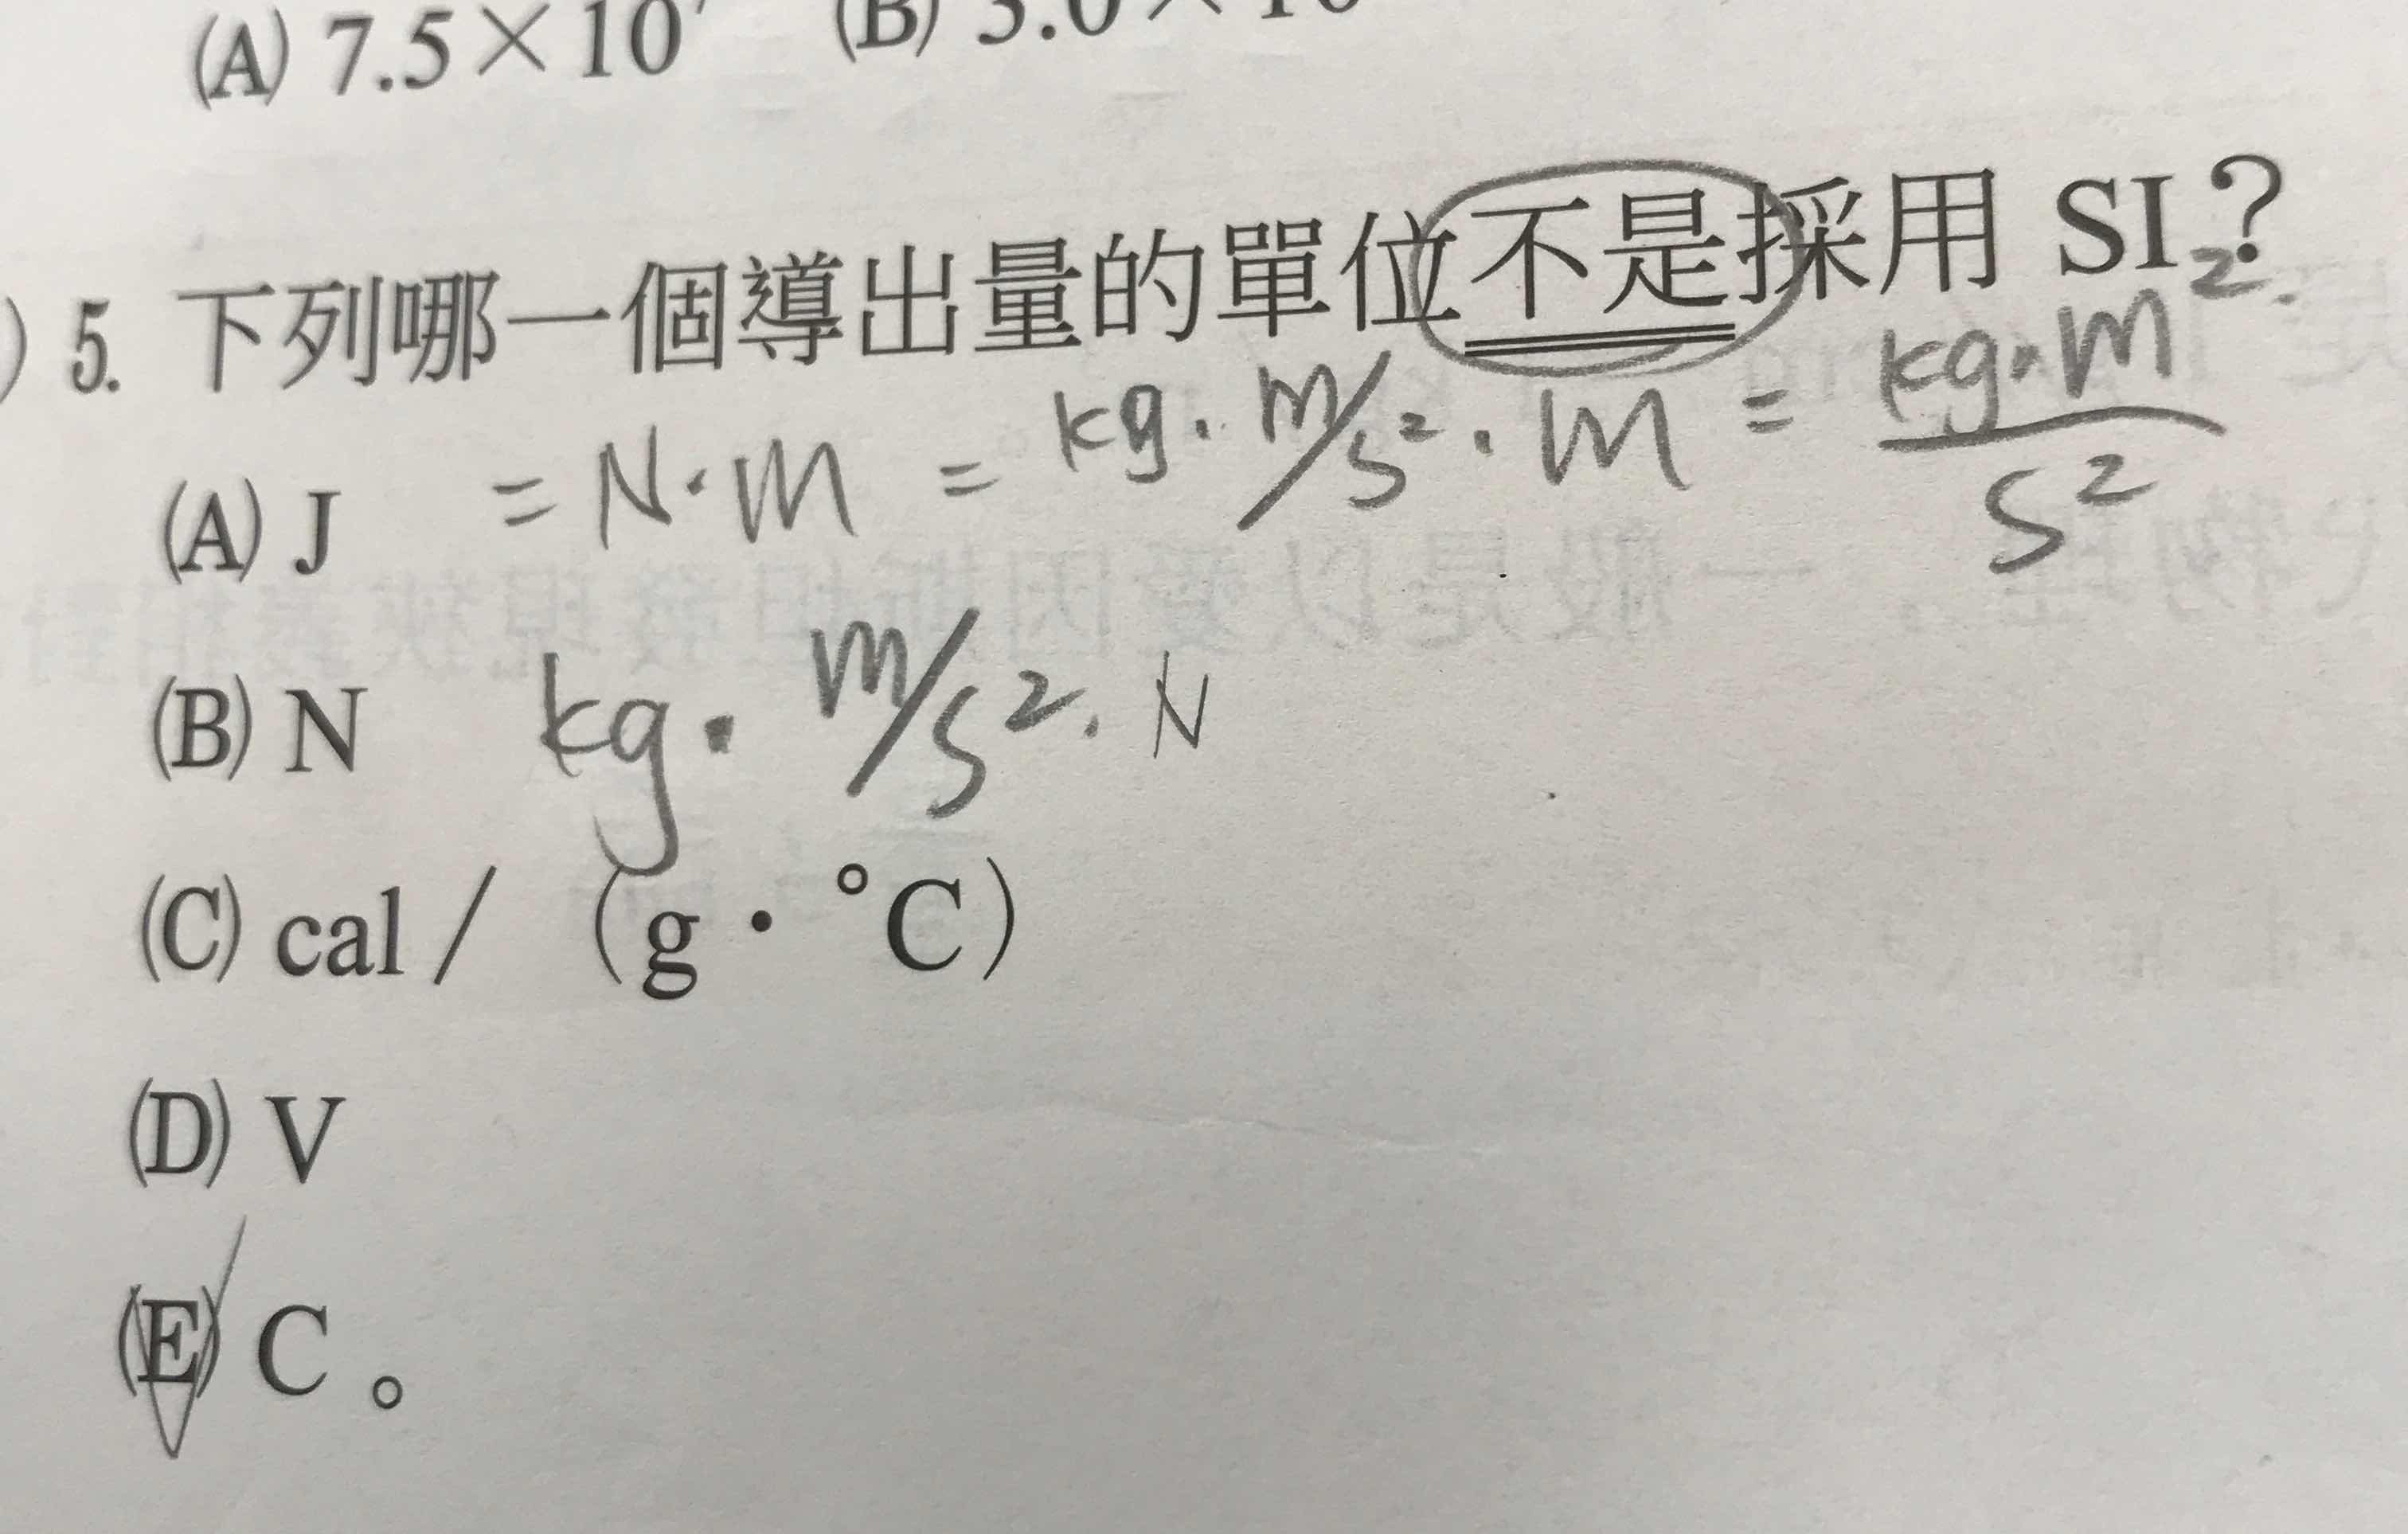 (A) 7.5×10⁷ (B) 3.0×10
) 5. 下列哪一個導出量的單位不是採用 SI?
(A) J = N·m = kg·m/s²·m = kg·m²/s²
(B) N kg·m/s². N
(C) cal/（g·°C）
(D) V
(E) C。